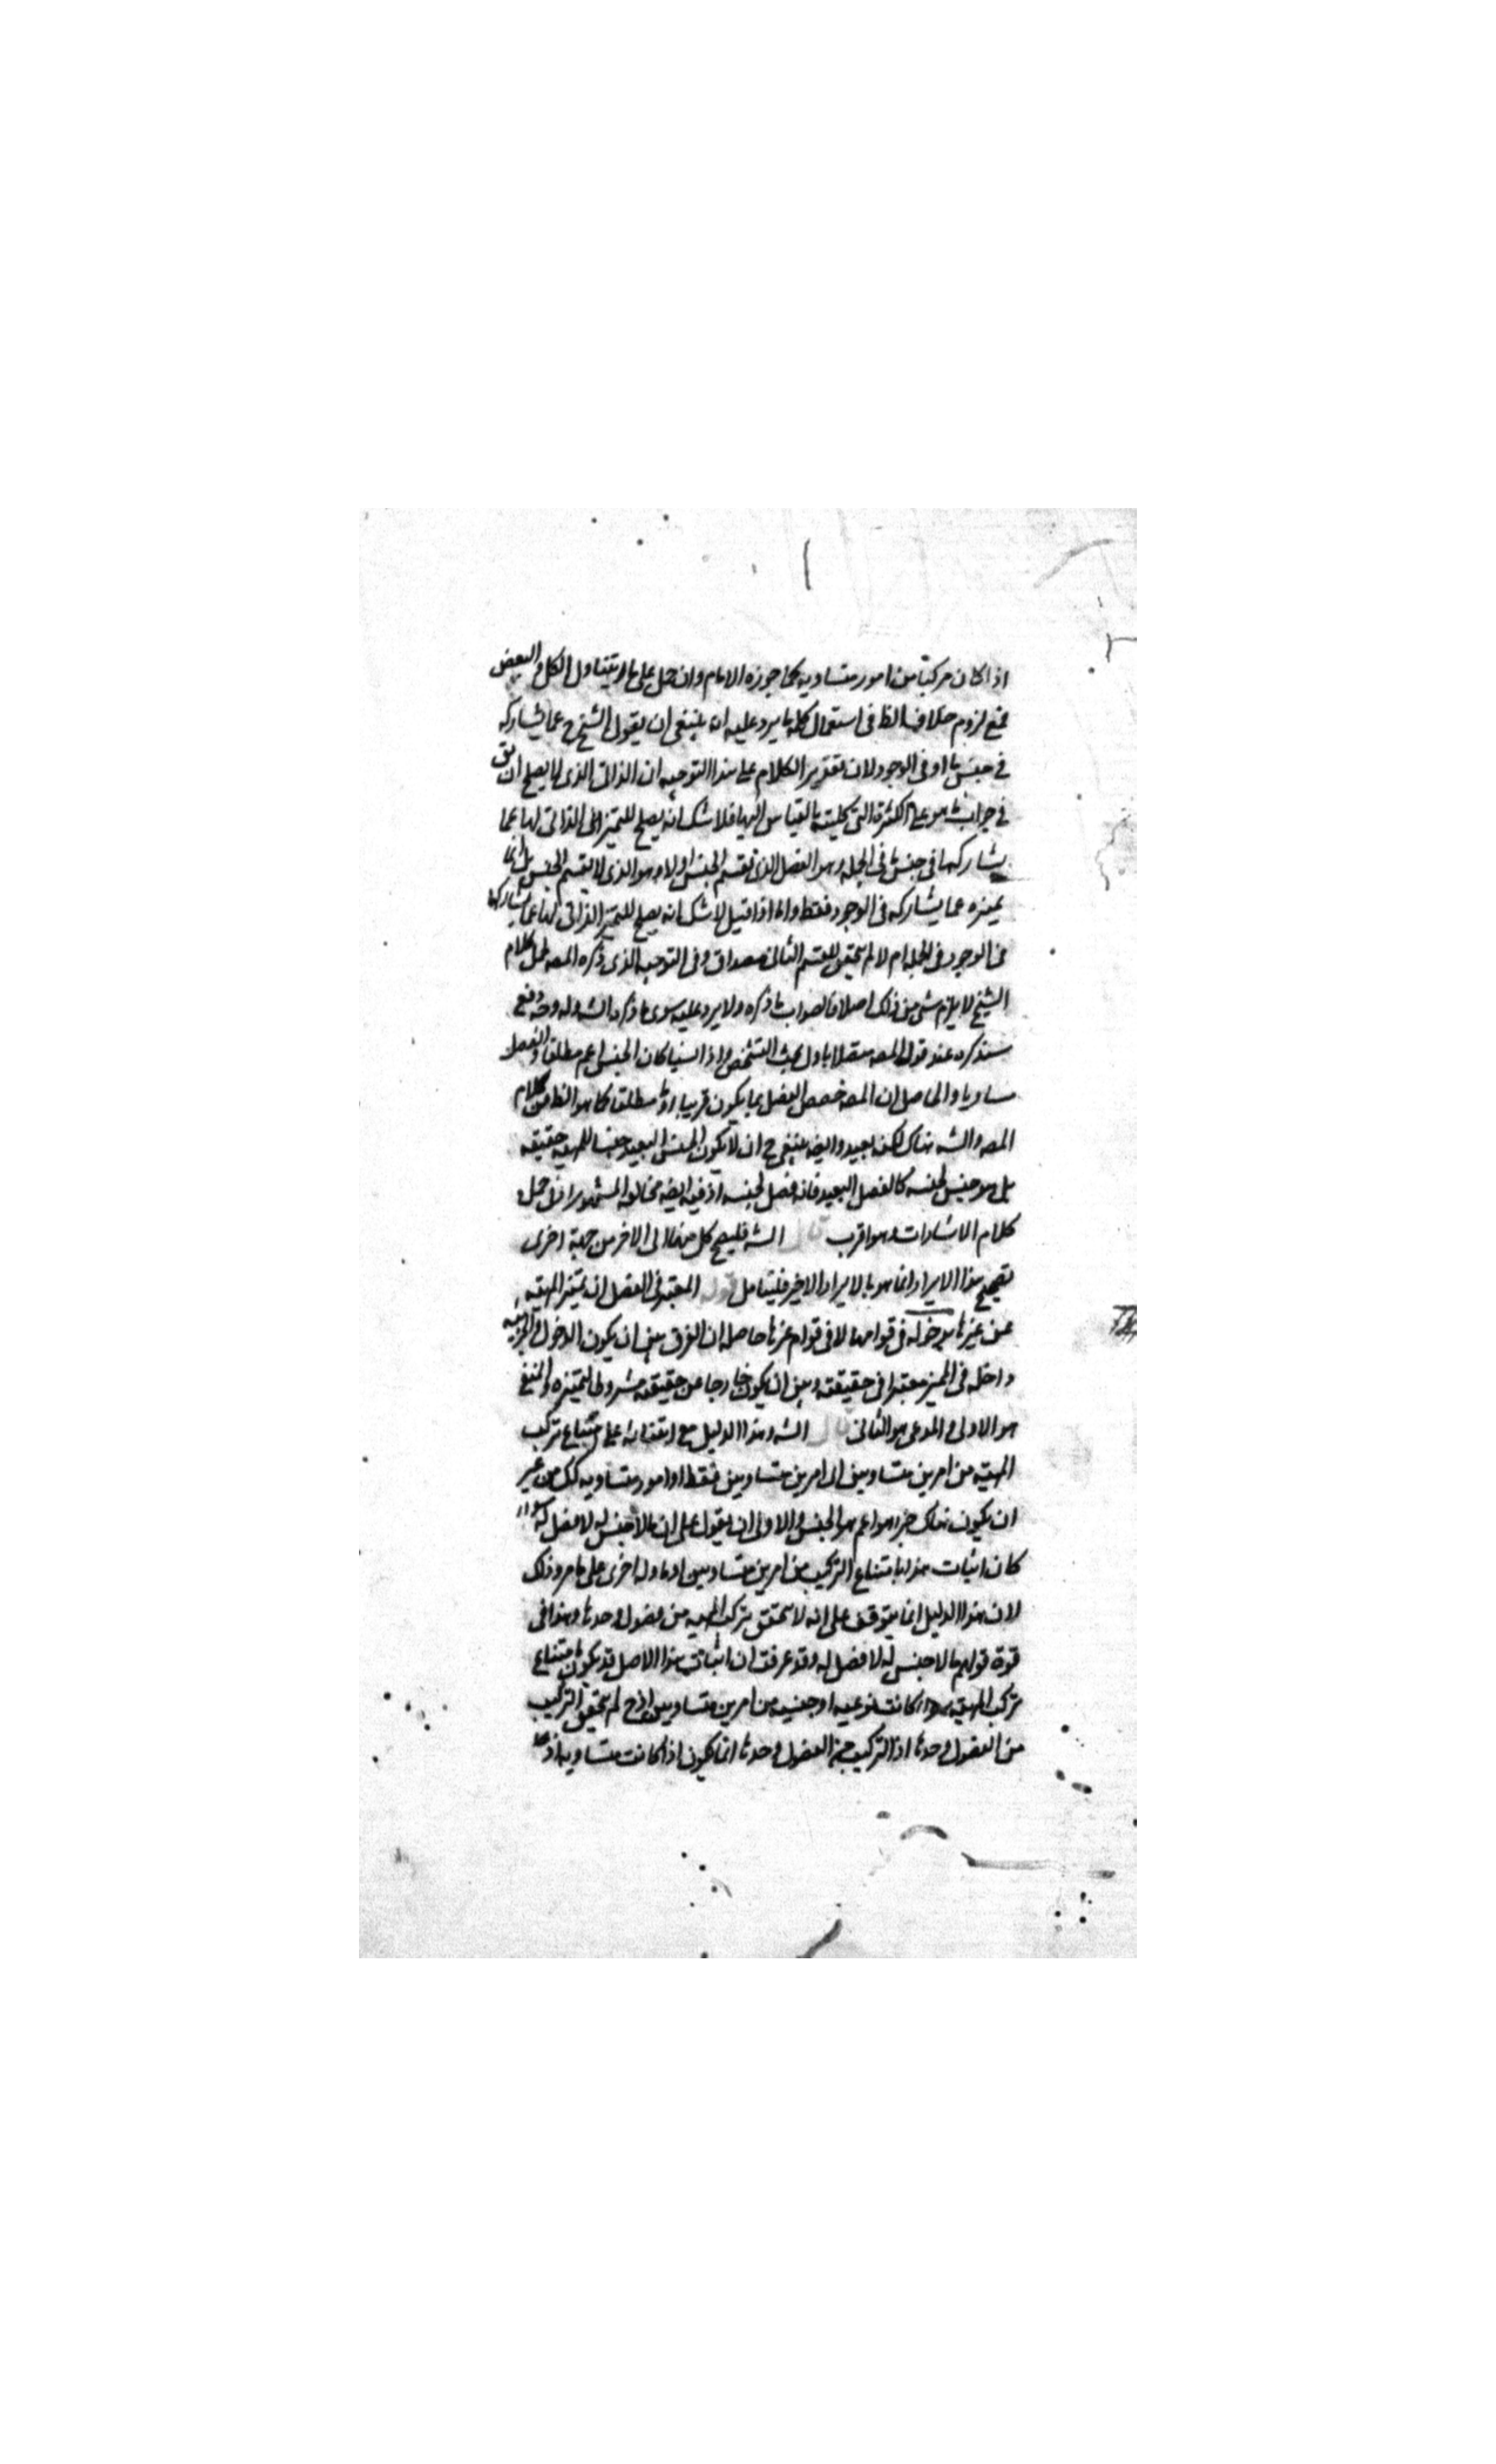 اذا كان مركبا من امور متساويه كما جوزه الامام وان حمل على ما يتناول الكل والبعض
فمع لزوم خلاف الظ فى استعمال كلمة ما يرد عليه انه ينبغى ان يقول الشيخ ح عما يشاركه
فى جنس ما او فى الوجود لان تقدير الكلام على هذا التوجيه ان الذاتى الذى لا يصلح ان يق
فى جواب ما هو على الكثرة التى كليته بالقياس اليها فلا شك انه يصلح للتميز الذاتى لها عما
يشاركها فى جنس ما فى الجمله وهو الفصل الذى يقسم الجنس اولا وهو الذى لا يقسم الجنس بل انما
يميزه عما يشاركه فى الوجود فقط واما اذا قيل لا شك انه يصلح للتميز الذاتى لها عما يشاركها
فى الوجود فى الجمله ام لا لم يتحقق للقسم الثانى مصداق وفى التوجيه الذى ذكره المصه لحمل كلام
الشيخ لا يلزم شى من ذلك اصلا فالصواب ما ذكره ولا يرد عليه سوى ما ذكره الشه وله وجه دفع
سنذكره عند قول المصه متصلا باول بحث التشخص واذا نسبا كان الجنس اعم مطلقا والفصل
مساويا والحاصل ان المصه خصص الفصل بما يكون قريبا مطلقا كما هو الظ من كلام
المصه والشه هناك لكنه بعيد وايضه ينبغى ح ان لا يكون الجنس البعيد جنسا للمهيه حقيقه
بل هو جنس لجنسه كالفصل البعيد فانه فصل لجنسه اذ فيه ايضه مخالفه المشهور حمل
كلام الاشارات وهو اقرب قال الشه فليصح كل منهما الى الاخر من جهة اخرى
تصحيح هذا الايراد انما هو بالايراد الاخير فليتامل قوله المعتبر فى الفصل ان يتميز المهيه
عن غيرها بدخوله فى قوامها لا فى قوام غيرها حاصله ان الفرق بين ان يكون الدخول والجزئيه
داخله فى المميز معتبرا فى حقيقته وبين ان يكون خارجا عن حقيقته مشروطا لتميزه والمنفى
هو الاول والمدعى هو الثانى قال الشه وهذا الدليل مع ابتنائه على امتناع تركب
المهيه من امرين متساويين اى امرين متساويين فقط او امور متساويه كك من غير
ان يكون هناك جزء هو اعم هو الجنس والاولى ان يقول على ان ما لا جنس له لا فصل له سواء
كان اثبات هذا بامتناع التركيب من امرين متساويين او بدليل اخرى على ما مر وذلك
لان هذا الدليل انما يتوقف على انه لا يتحقق تركب المهيه من فصول وحدها وهذا فى
قوة قولهم ما لا جنس له لا فصل له وقد عرفت ان اثبات هذا الاصل قد يكون بامتناع
تركب المهيه سواء كانت نوعيه او جنسيه من امرين متساويين اذ ح لم يتحقق التركيب
من الفصول وحدها اذ التركيب من الفصول وحدها انما يكون اذا كانت متساويه اذ